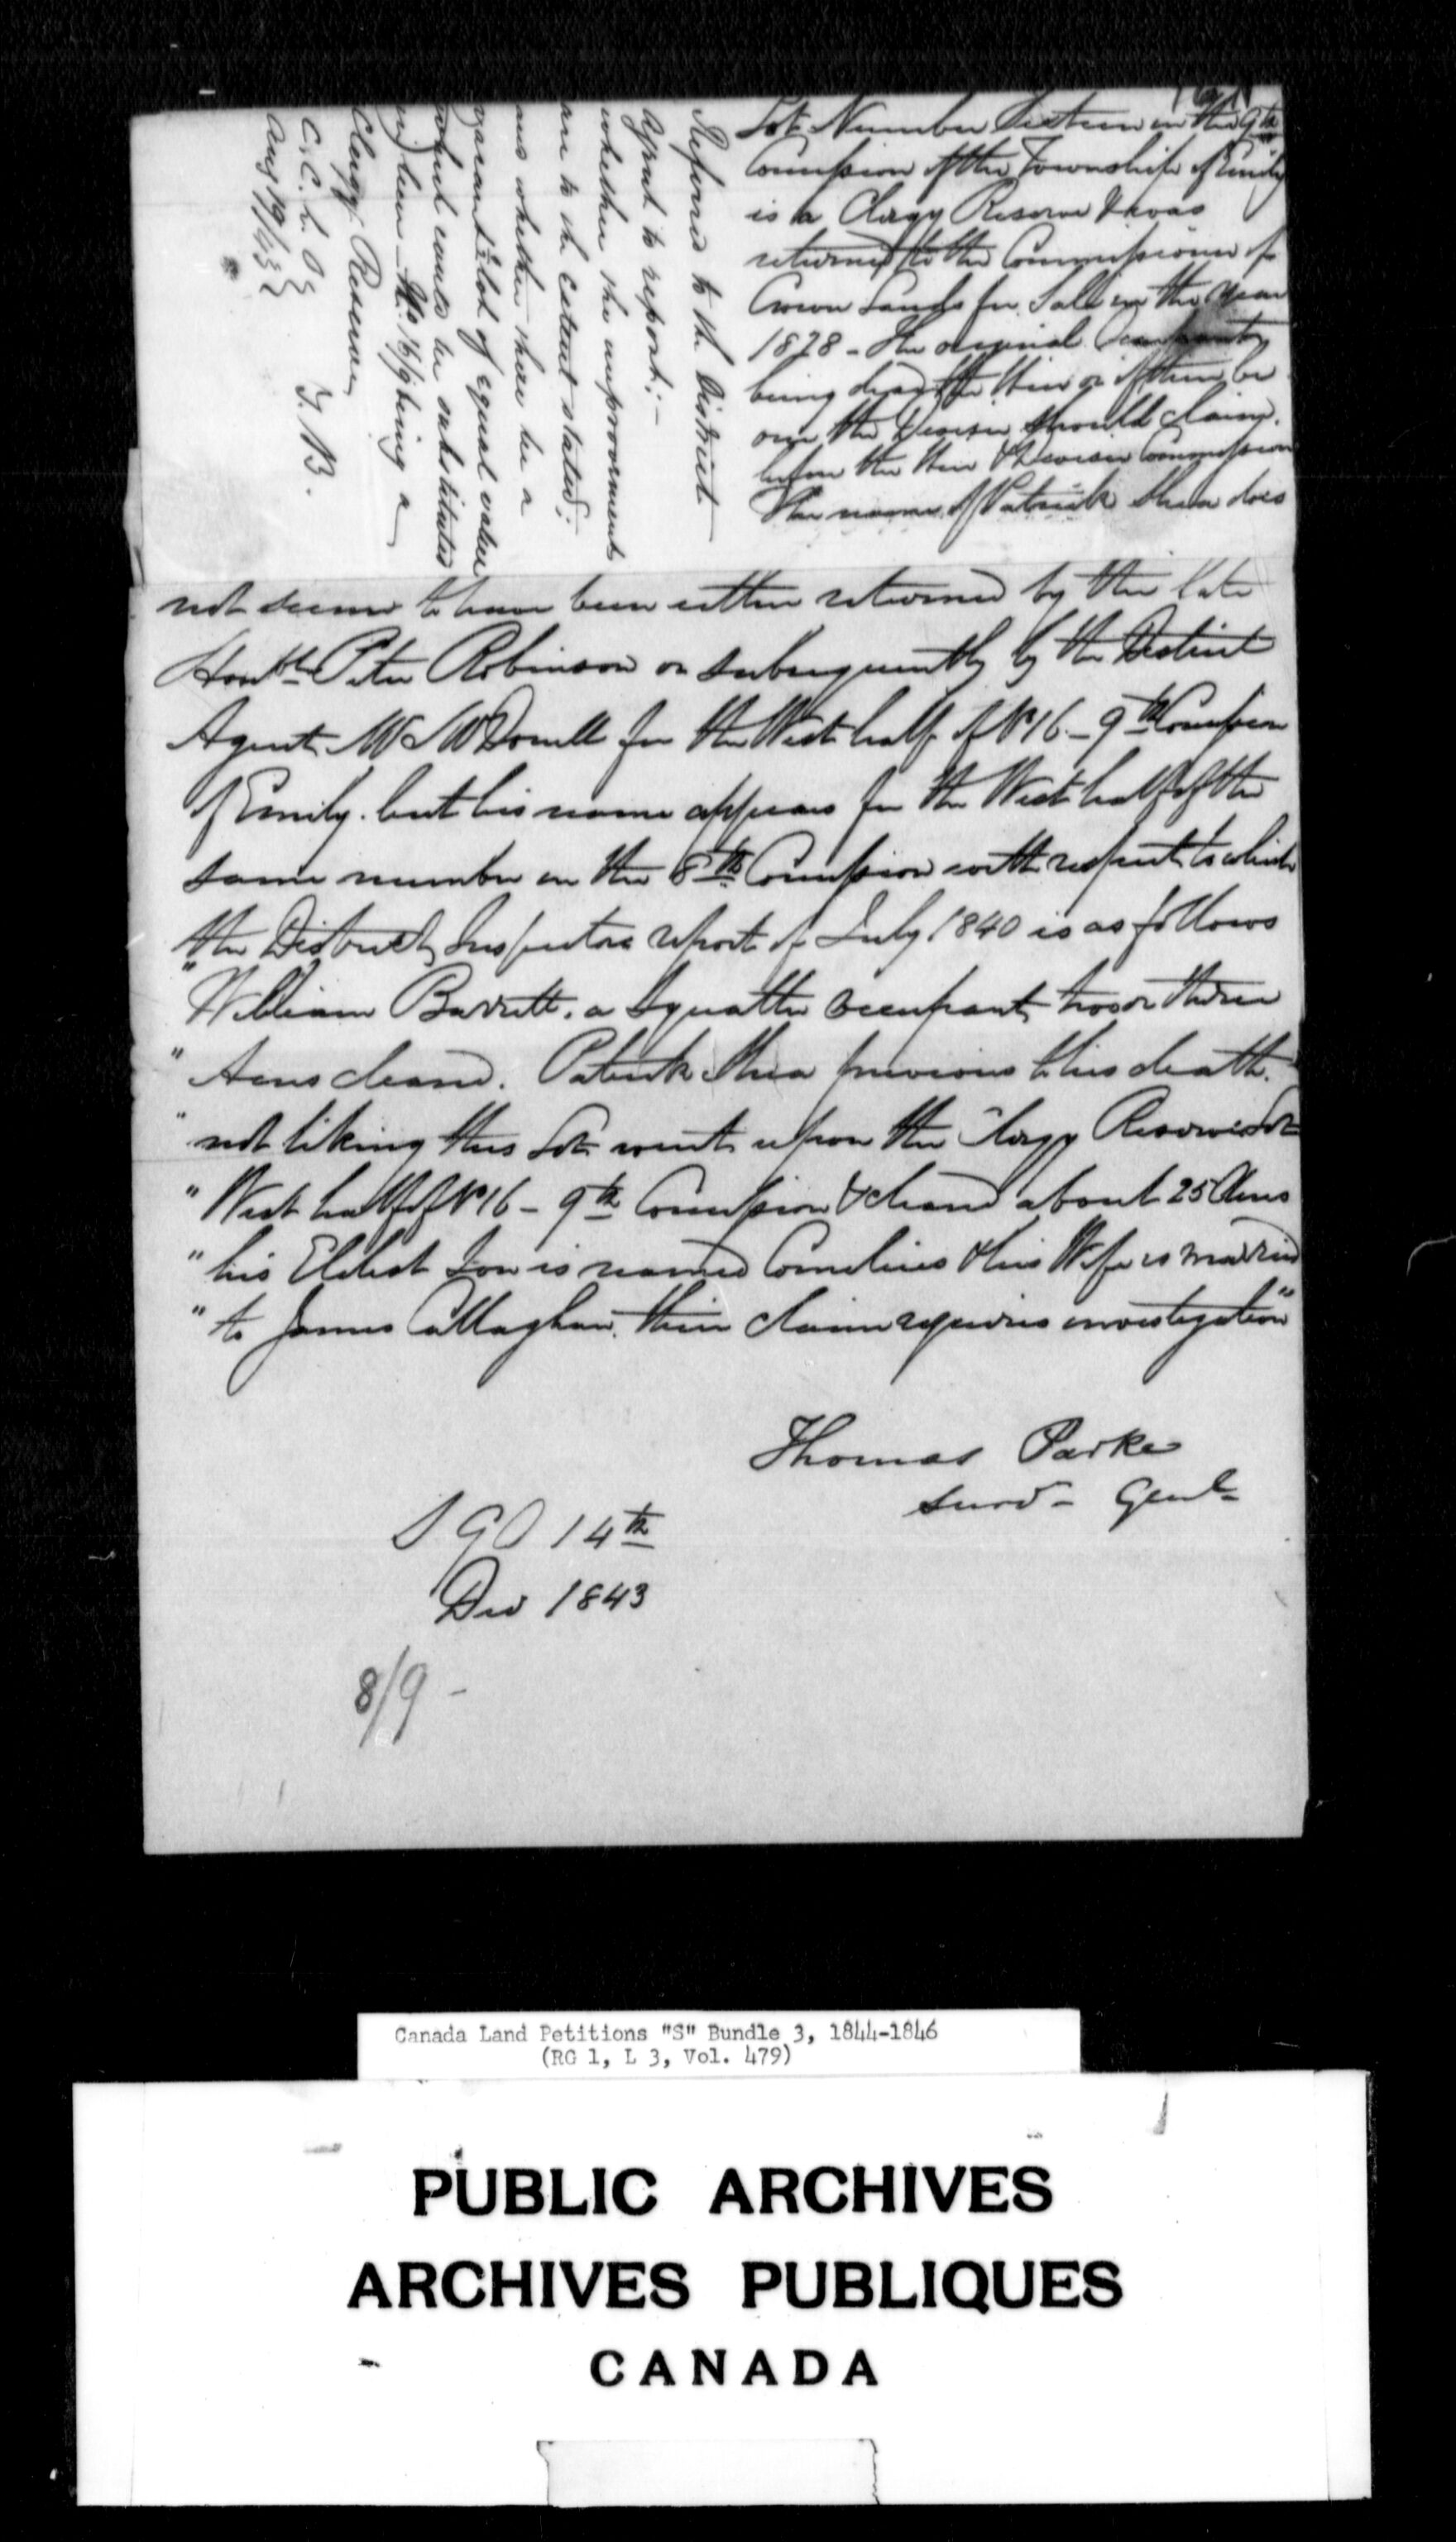 Lot Number Sixteen in the 9th
Concession of the Township of Emily
is a Clergy Reserve & was
returned to the Commissioner of
Crown Lands for Sale in the Year
1828 - The original Occupant
being dead the Heir or if there be
one the Devisee should claim
before the Heir & Devisee Commission
The name of Patrick Shea does
not seem to have been either returned by the late
Honble Peter Robinson or subsequently by the District
Agent Mr McDonell for the West half of No 16 - 9th Concession
of Emily. but his name appears for the West half of the
same number in the 8th Concession with respect to which
the District Inspectors report of July 1840 is as follows
" William Barrett, a Squatter occupant, two or three
" Acres cleared. Patrick Shea previous to his death.
" not liking this Lot went upon the Clergy Reserve Lot
" West half of No 16 - 9th Concession & cleared about 25 Acres
" his Eldest Son is named Cornelius & his Wife is married
" to James Callaghan. their claim requires investigation"
Thomas Parke
Survr Genl
S G O 14th
Dec 1843
8/9 -
Referred to the District
Agent to report:-
whether the improvements
are to the extent stated;
and whether there be a
vacant lot of equal value
which could be substituted
in lieu - No. 16/9 being a
Clergy Reserve
T. B.
C. C. L. O
Aug 19/43
Canada Land Petitions "S" Bundle 3, 1844-1846
(RG 1, L 3, Vol. 479)
PUBLIC ARCHIVES
ARCHIVES PUBLIQUES
CANADA